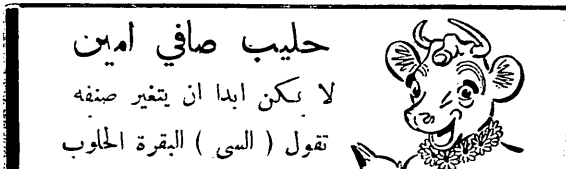 حليب صافي امين
لا يمكن ابدا ان يتغير صنفه
تقول ( السي ) البقرة الحلوب